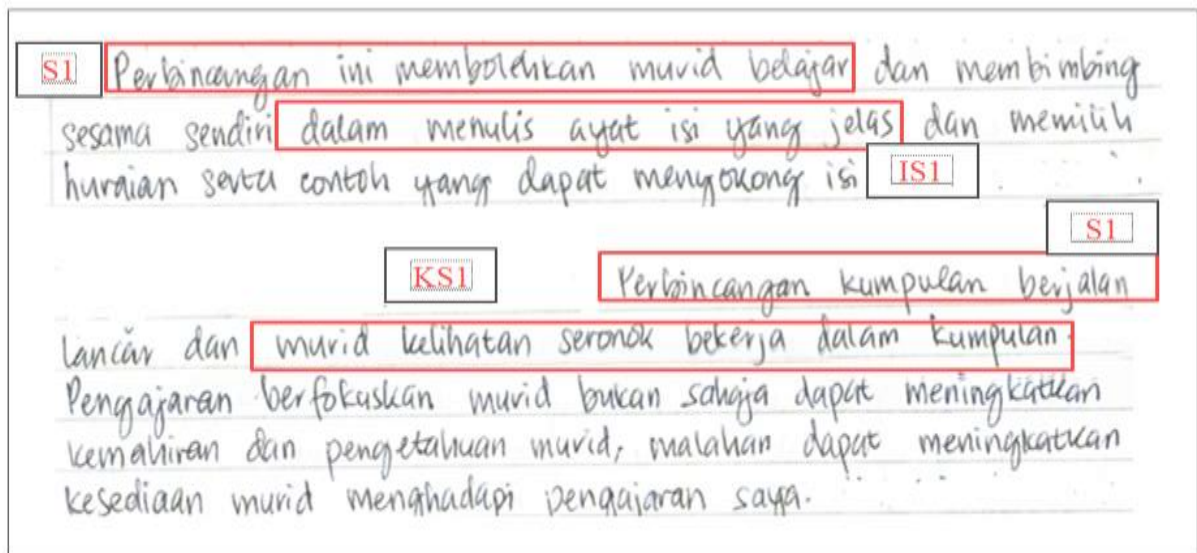 S1 Perbincangan ini membolehkan murid belajar dan membimbing
sesama sendiri dalam menulis ayat isi yang jelas dan memilih
huraian serta contoh yang dapat menyokong isi IS1
S1
KS1 Perbincangan kumpulan berjalan
lancar dan murid kelihatan seronok bekerja dalam kumpulan.
Pengajaran berfokuskan murid bukan sahaja dapat meningkatkan
kemahiran dan pengetahuan murid, malahan dapat meningkatkan
kesediaan murid menghadapi pengajaran saya.